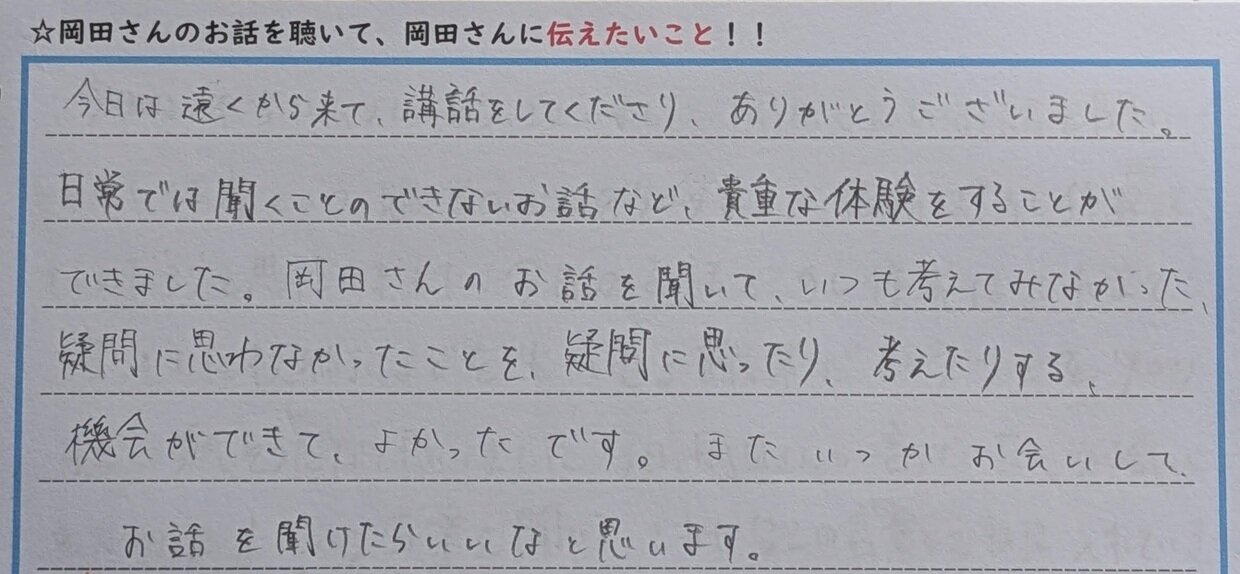 ☆岡田さんのお話を聴いて、岡田さんに伝えたいこと！！
今日は遠くから来て、講話をしてくださり、ありがとうございました。
日常では聞くことのできないお話など、貴重な体験をすることが
できました。岡田さんのお話を聞いて、いつも考えてみなかった、
疑問に思わなかったことを、疑問に思ったり、考えたりする、
機会ができて、よかったです。またいつかお会いして、
お話を聞けたらいいなと思います。